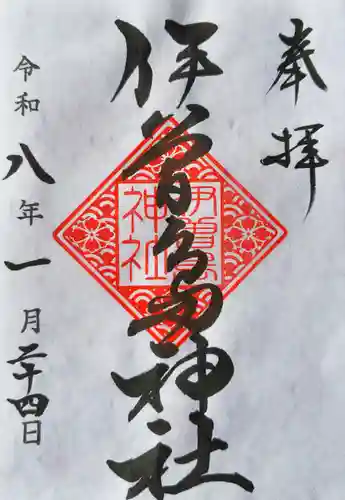 奉拝
伊曽乃神社
伊曽乃神社
令和八年一月二十四日